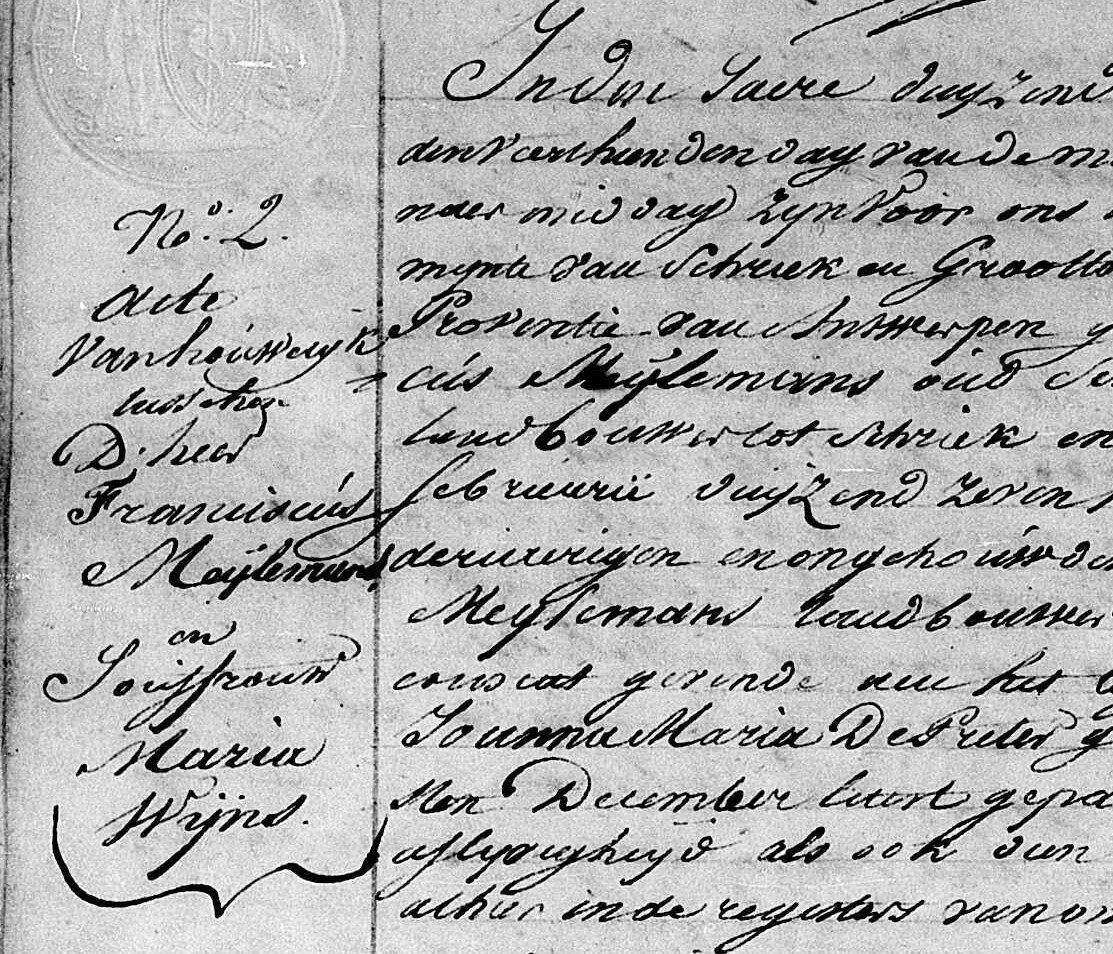 No. 2.
Acte
Van houwelyk
tusschen
D'heer
Franciscus
Meÿlemans
en
Jouffrouw
Maria
Wijns.
In den Jaere duyzend
den Veerthienden dag van de m
naer middag zyn Voor ons
mynte van Schriek en Grootlo
Provintie van Antwerpen g
cus Meÿlemans oud
landbouwer tot Schriek en
februarii duyzend zeven h
dernegen en ongehouwd
Meylemans landbouwer
consent gevende aen het
Joanna Maria De Preter g
sten December laest gepa
aflyvigheyd als ook den
alhier in de registers van on